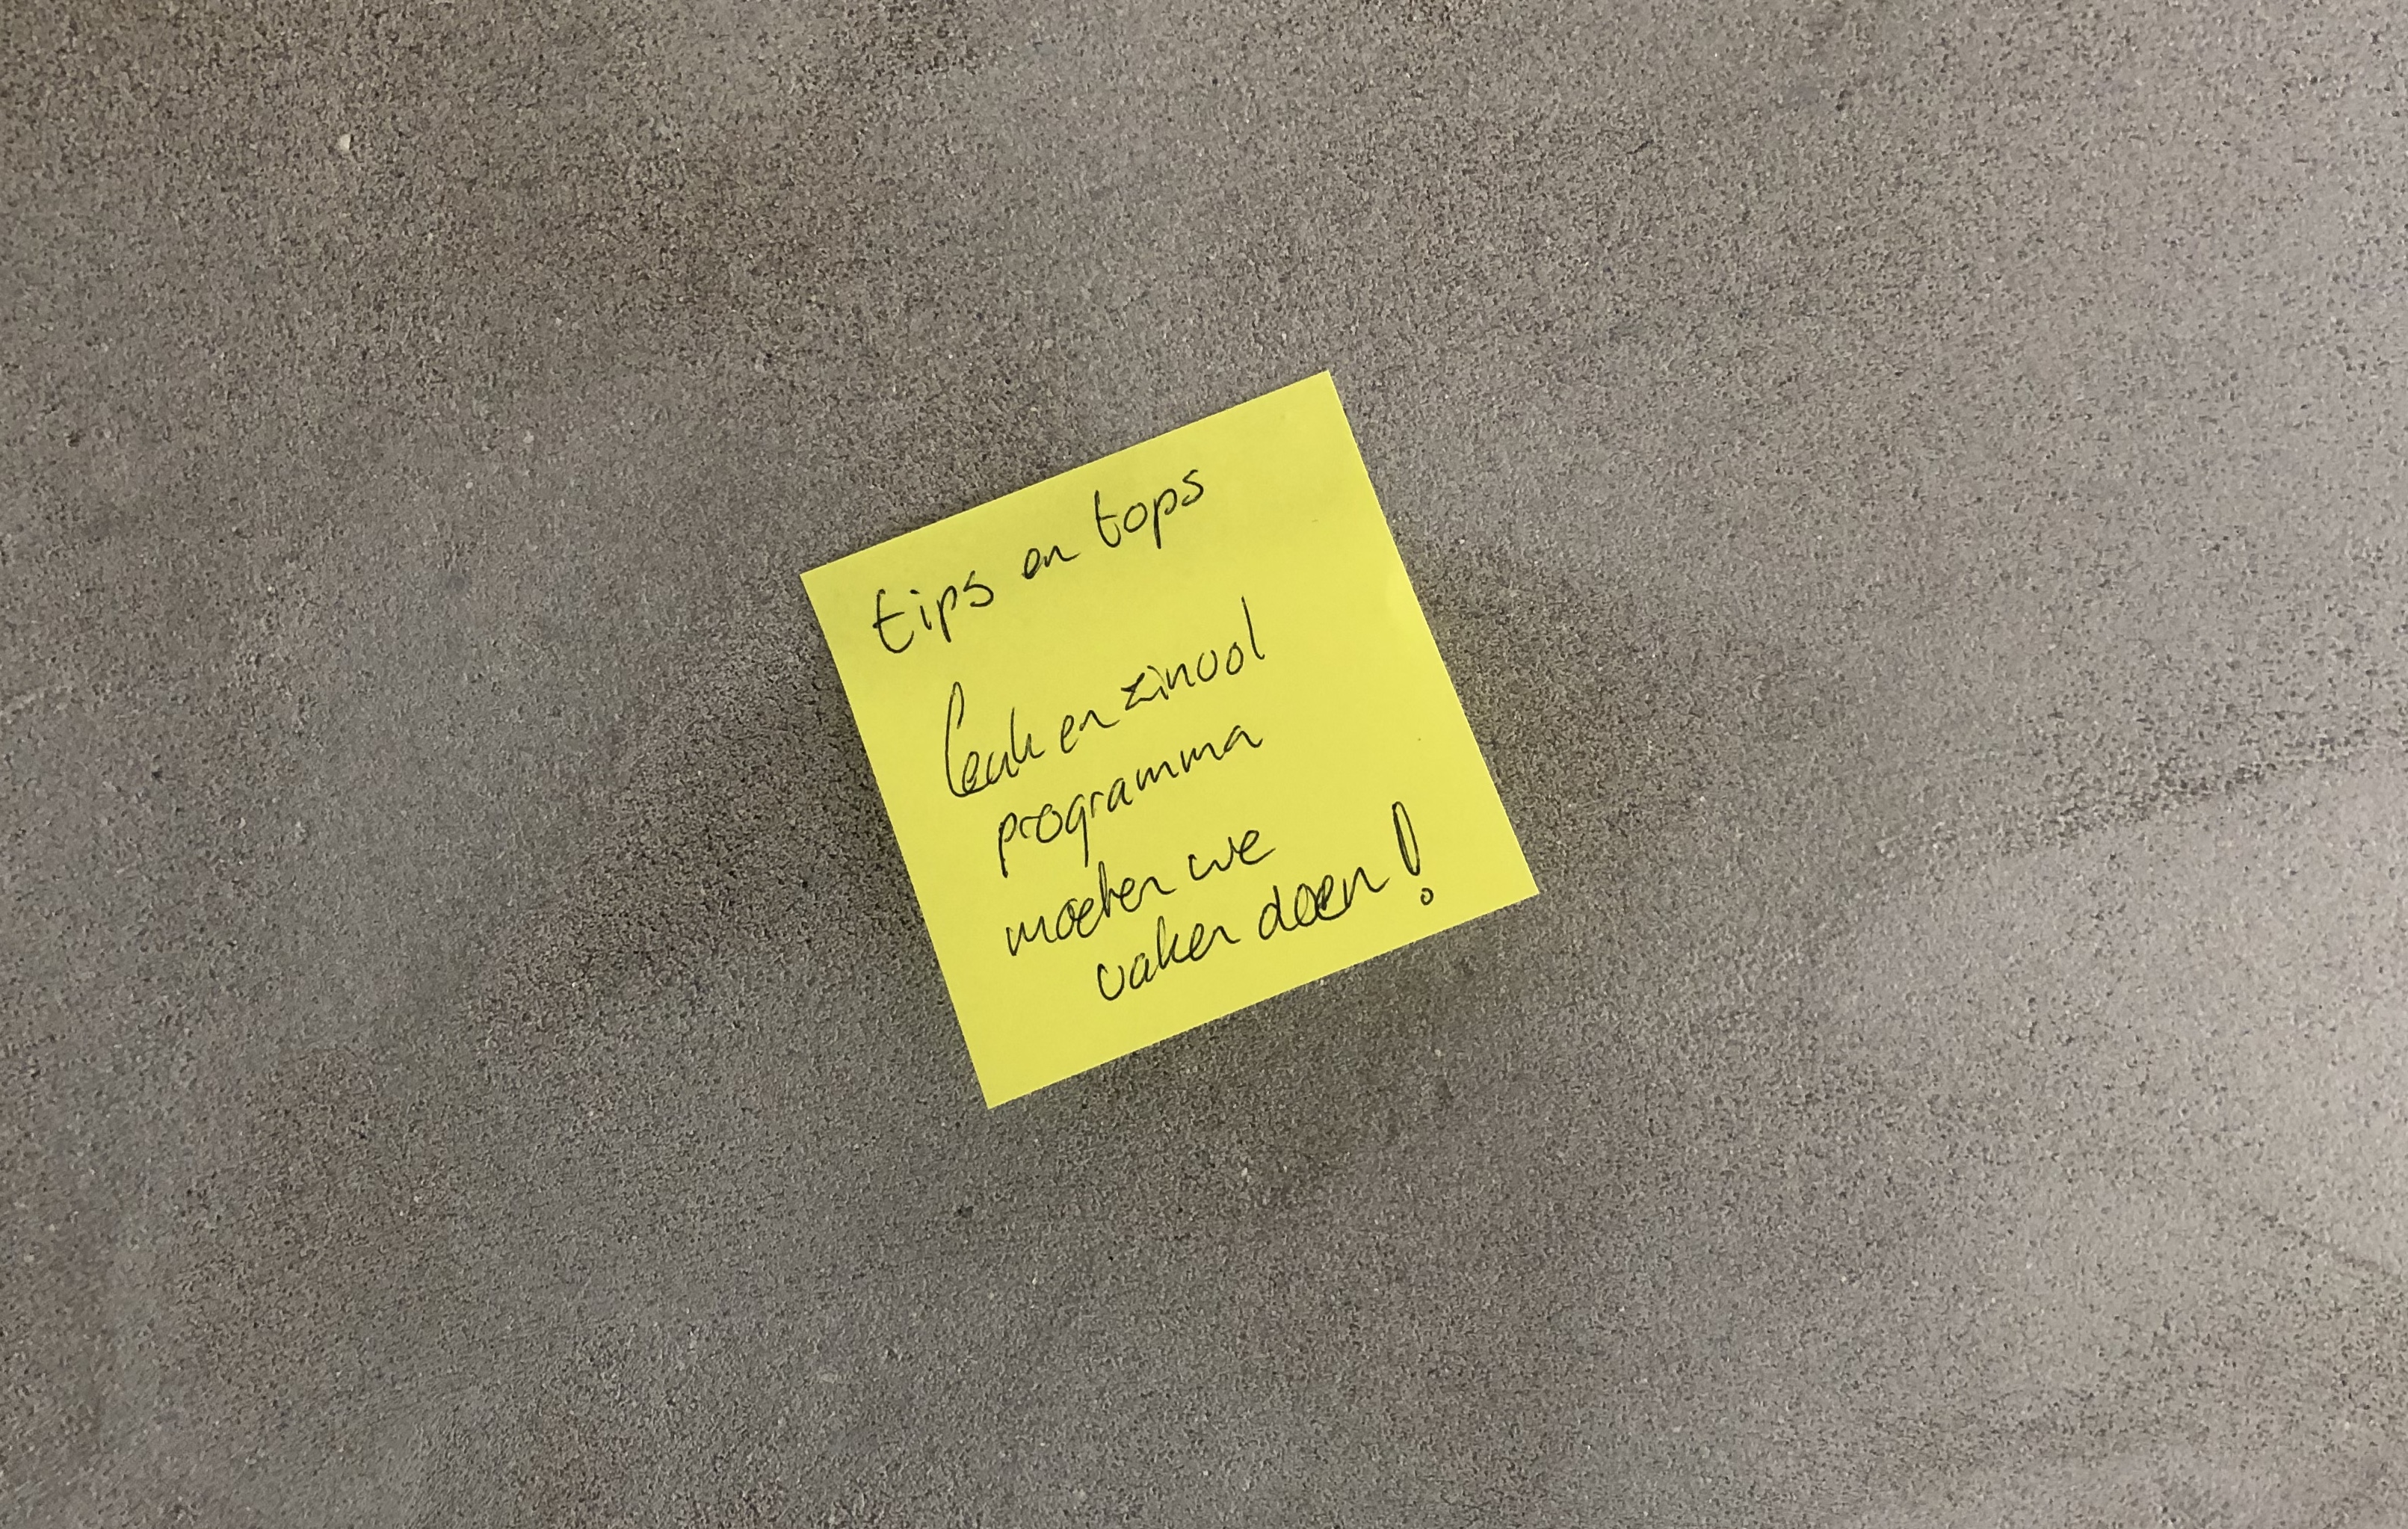 tips en tops
leuk en zinvol
programma
moeten we
vaker doen!